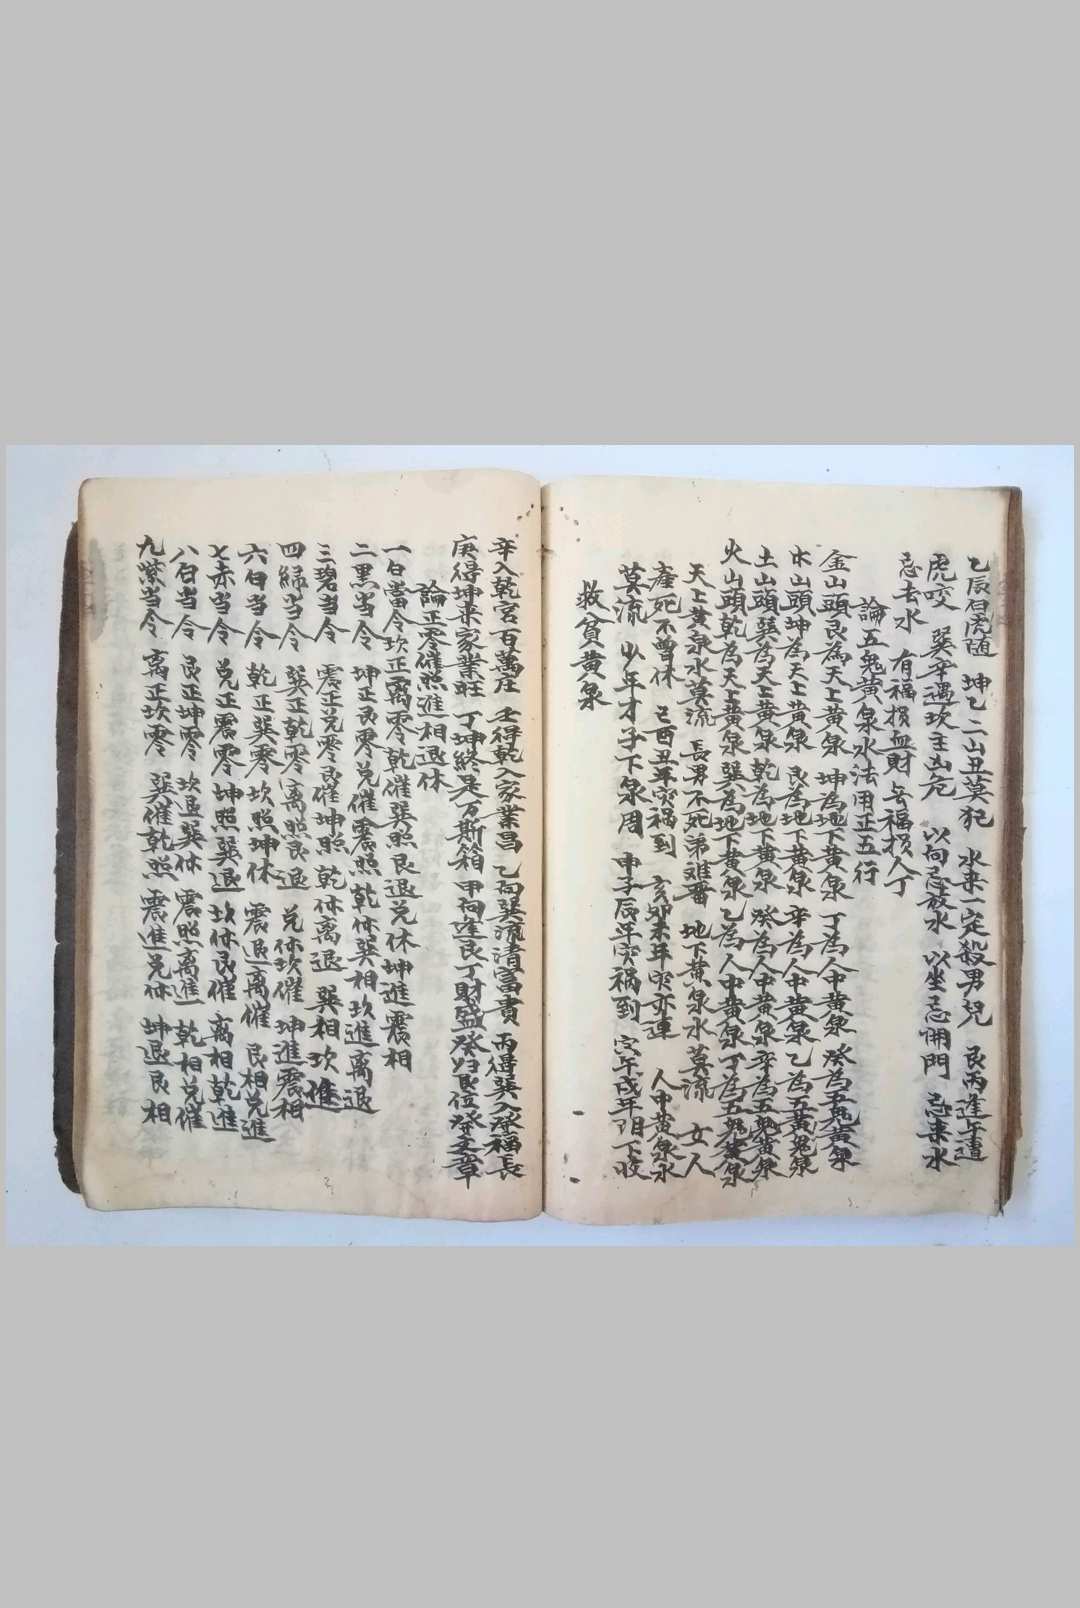 乙辰白虎随 坤乙二山丑莫犯 水来一定殺男兒 艮丙逢午遭
虎咬 巽辛遇坎主凶危 以向忌放水 以坐忌開門 忌来水
忌去水 有福損血財 無福損人丁
論五鬼黃泉水法用正五行
金山頭艮為天上黃泉 坤為地下黃泉 丁為人中黃泉 癸為五鬼黃泉
木山頭坤為天上黃泉 艮為地下黃泉 辛為人中黃泉 乙為五鬼黃泉
土山頭巽為天上黃泉 乾為地下黃泉 癸為人中黃泉 辛為五鬼黃泉
火山頭乾為天上黃泉 巽為地下黃泉 乙為人中黃泉 丁為五鬼黃泉
天上黃泉水莫流 長男不死弟难番 地下黃泉水莫流 女人
產死不曾休 巳酉丑年灾祸到 亥卯未年灾亦連 人中黃泉水
莫流 少年才子下泉周 申子辰年灾祸到 寅午戌年
救貧黄泉
辛入乾宮百萬庄 壬得乾入家業昌 乙向巽流清富貴 丙得巽入發福長
庚得坤来家業旺 丁坤終是万斯箱 甲向逢艮丁財盛 癸归艮位發文章
論正零催照進相退休
一白當令坎正離零乾催巽照艮退兑休坤進震相
二黑当令 坤正艮零兑催震照乾休巽相坎進離退
三碧当令 震正兑零艮催坤照 乾休离退 巽相坎進
四綠当令 巽正乾零离照艮退 兑休坎催 坤進震相
六白当令 乾正巽零 坎照坤休 震退离催 艮相兑進
七赤当令 兑正震零 坤照巽退 坎休艮催 离相乾進
八白当令 艮正坤零 坎退巽休 震照离進 乾相兑催
九紫当令 离正坎零 巽催乾照 震進兑休 坤退艮相